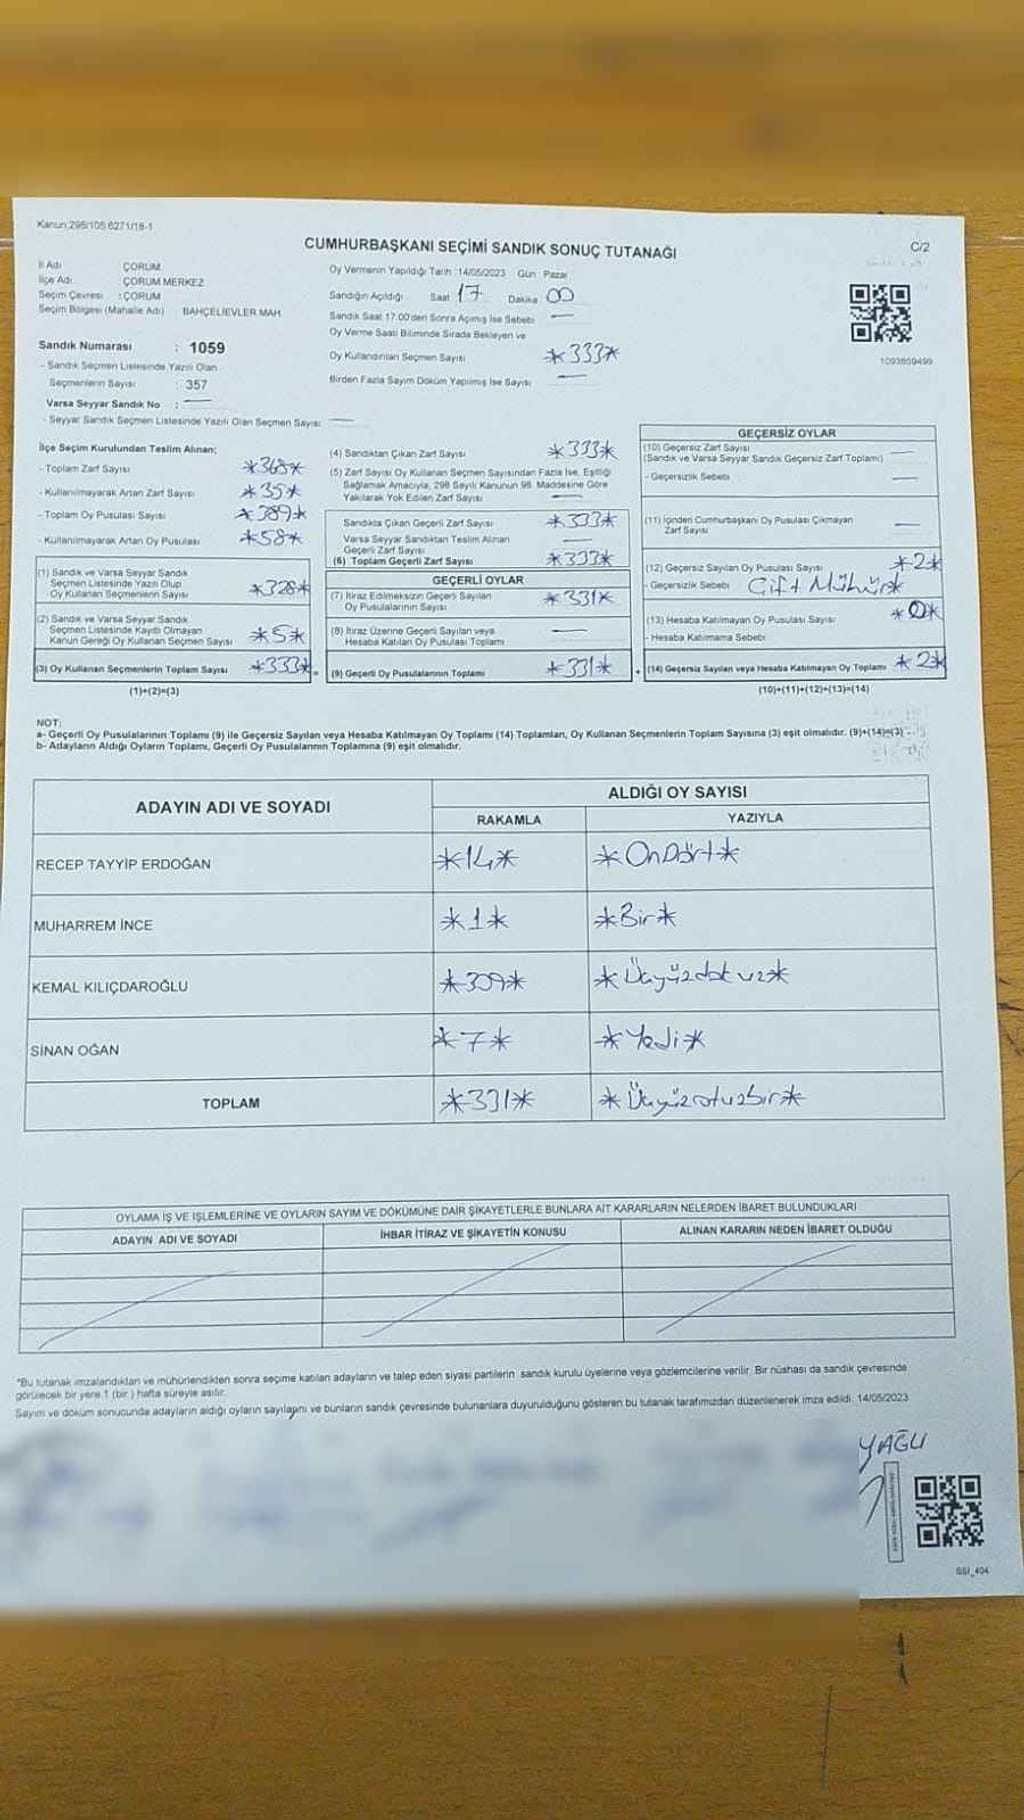 Kanun:298/105 6271/18-1
CUMHURBAŞKANI SEÇİMİ SANDIK SONUÇ TUTANAĞI
C/2
İl Adı ÇORUM
İlçe Adı ÇORUM MERKEZ
Seçim Çevresi : ÇORUM
Seçim Bölgesi (Mahalle Adı) BAHÇELİEVLER MAH.
Oy Vermenin Yapıldığı Tarih :14/05/2023 Gün: Pazar
Sandığın Açıldığı Saat 17 Dakika 00
Sandık Saat 17:00'den Sonra Açılmış İse Sebebi —
Oy Verme Saati Bitiminde Sırada Bekleyen ve
Oy Kullandırılan Seçmen Sayısı *333*
Birden Fazla Sayım Döküm Yapılmış İse Sayısı —
1093809499
Sandık Numarası : 1059
- Sandık Seçmen Listesinde Yazılı Olan
Seçmenlerin Sayısı : 357
Varsa Seyyar Sandık No : —
- Seyyar Sandık Seçmen Listesinde Yazılı Olan Seçmen Sayısı: —
İlçe Seçim Kurulundan Teslim Alınan;
- Toplam Zarf Sayısı *368*
- Kullanılmayarak Artan Zarf Sayısı *35*
- Toplam Oy Pusulası Sayısı *389*
- Kullanılmayarak Artan Oy Pusulası *58*
(1) Sandık ve Varsa Seyyar Sandık
Seçmen Listesinde Yazılı Olup
Oy Kullanan Seçmenlerin Sayısı *328*
(2) Sandık ve Varsa Seyyar Sandık
Seçmen Listesinde Kayıtlı Olmayan
Kanun Gereği Oy Kullanan Seçmen Sayısı *5*
(3) Oy Kullanan Seçmenlerin Toplam Sayısı *333* =
(1)+(2)=(3)
(4) Sandıktan Çıkan Zarf Sayısı *333*
(5) Zarf Sayısı Oy Kullanan Seçmen Sayısından Fazla İse, Eşitliği
Sağlamak Amacıyla, 298 Sayılı Kanunun 98. Maddesine Göre
Yakılarak Yok Edilen Zarf Sayısı —
Sandıkta Çıkan Geçerli Zarf Sayısı *333*
Varsa Seyyar Sandıktan Teslim Alınan
Geçerli Zarf Sayısı —
(6) Toplam Geçerli Zarf Sayısı *333*
GEÇERLİ OYLAR
(7) İtiraz Edilmeksizin Geçerli Sayılan
Oy Pusulalarının Sayısı *331*
(8) İtiraz Üzerine Geçerli Sayılan veya
Hesaba Katılan Oy Pusulası Toplamı —
(9) Geçerli Oy Pusulalarının Toplamı *331* +
GEÇERSİZ OYLAR
(10) Geçersiz Zarf Sayısı
(Sandık ve Varsa Seyyar Sandık Geçersiz Zarf Toplamı) —
- Geçersizlik Sebebi —
(11) İçinden Cumhurbaşkanı Oy Pusulası Çıkmayan
Zarf Sayısı —
(12) Geçersiz Sayılan Oy Pusulası Sayısı *2*
- Geçersizlik Sebebi Çift Mühür*
(13) Hesaba Katılmayan Oy Pusulası Sayısı *0*
- Hesaba Katılmama Sebebi
(14) Geçersiz Sayılan veya Hesaba Katılmayan Oy Toplamı *2*
(10)+(11)+(12)+(13)=(14)
NOT:
a- Geçerli Oy Pusulalarının Toplamı (9) ile Geçersiz Sayılan veya Hesaba Katılmayan Oy Toplamı (14) Toplamları, Oy Kullanan Seçmenlerin Toplam Sayısına (3) eşit olmalıdır. (9)+(14)=(3)
b- Adayların Aldığı Oyların Toplamı, Geçerli Oy Pusulalarının Toplamına (9) eşit olmalıdır.
ADAYIN ADI VE SOYADI ALDIĞI OY SAYISI
RAKAMLA YAZIYLA
RECEP TAYYİP ERDOĞAN *14* *OnDört*
MUHARREM İNCE *1* *Bir*
KEMAL KILIÇDAROĞLU *309* *Üçyüzdokuz*
SİNAN OĞAN *7* *Yedi*
TOPLAM *331* *Üçyüzotuzbir*
OYLAMA İŞ VE İŞLEMLERİNE VE OYLARIN SAYIM VE DÖKÜMÜNE DAİR ŞİKAYETLERLE BUNLARA AİT KARARLARIN NELERDEN İBARET BULUNDUKLARI
ADAYIN ADI VE SOYADI İHBAR İTİRAZ VE ŞİKAYETİN KONUSU ALINAN KARARIN NEDEN İBARET OLDUĞU
*Bu tutanak imzalandıktan ve mühürlendikten sonra seçime katılan adayların ve talep eden siyasi partilerin sandık kurulu üyelerine veya gözlemcilerine verilir. Bir nüshası da sandık çevresinde
görülecek bir yere 1 (bir ) hafta süreyle asılır.
Sayım ve döküm sonucunda adayların aldığı oyların sayılarını ve bunların sandık çevresinde bulunanlara duyurulduğunu gösteren bu tutanak tarafımızdan düzenlenerek imza edildi. 14/05/2023
YAĞLI
SSI_404